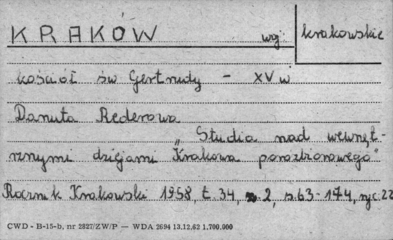 KRAKÓW wg. krakowskie
kościół św Gertrudy - XV w
Danuta Rederowa
"Studia nad wewnęt-
rznymi dziejami Krakowa porozbiorowego"
Rocznik Krakowski 1958, t. 34, s. 63-174, ryc. 22
CWD - B-15-b, nr 2827/ZW/P — WDA 2694 13.12.62 1.700.000